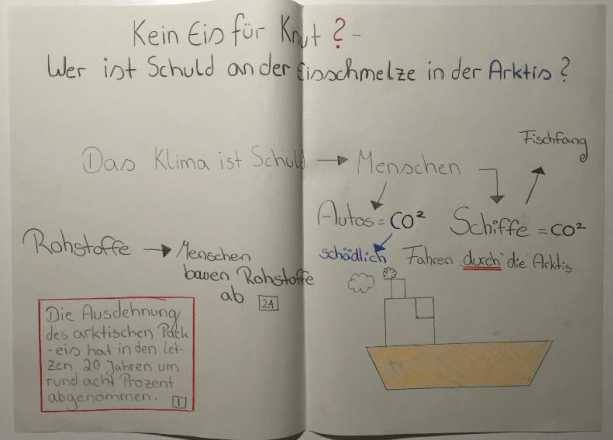 Kein Eis für Knut? -
Wer ist Schuld an der Eisschmelze in der Arktis?
Das Klima ist Schuld → Menschen
Fischfang
Autos = CO²
Schiffe = CO²
schädlich
Fahren durch die Arktis
Rohstoffe → Menschen
bauen Rohstoffe
ab 24
Die Ausdehnung
des arktischen Pack
-eis hat in den Let-
zen 20 Jahren um
rund acht Prozent
abgenommen. 1